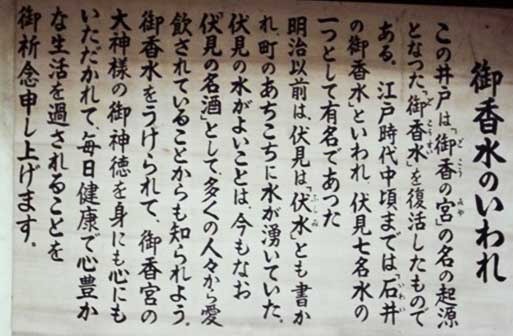 御香水のいわれ
この井戸は「御香の宮」の名の起源
となった「御香水」を復活したもので
ある。江戸時代中頃までは「石井
の御香水」といわれ、伏見七名水の
一つとして有名であった
明治以前は、伏見は「伏水」とも書か
れ、町のあちこちに水が湧いていた。
伏見の水がよいことは、今もなお
伏見の名酒」として、多くの人々から愛
飲されていることからも知られよう。
御香水をうけられて、御香宮の
大神様の御神徳を身にも心にも
いただかれて、毎日健康で心豊か
な生活を過されることを
御祈念申し上げます。